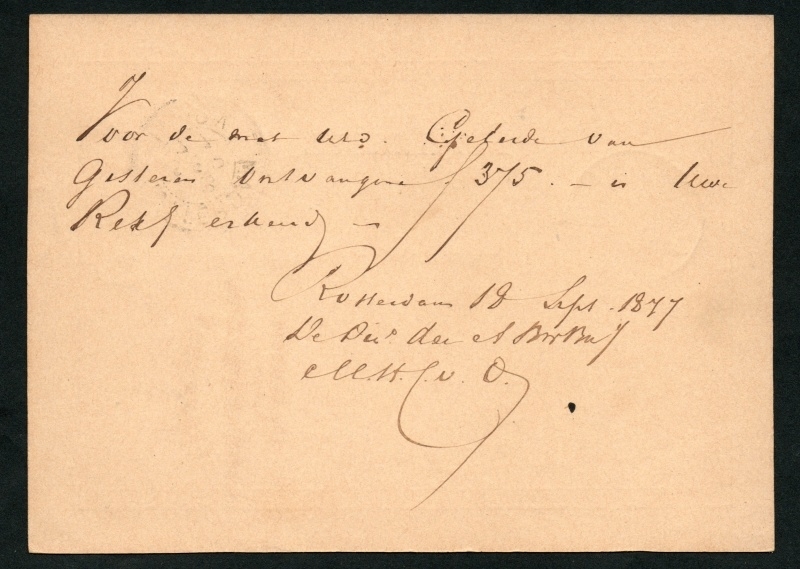 Voor de met UEd. Geleide van
Gisteren ontvangene f 375.– is Uwe
Rek erkend –
Rotterdam 18 Sept. 1877
De Dir. der
M.H. v. O.